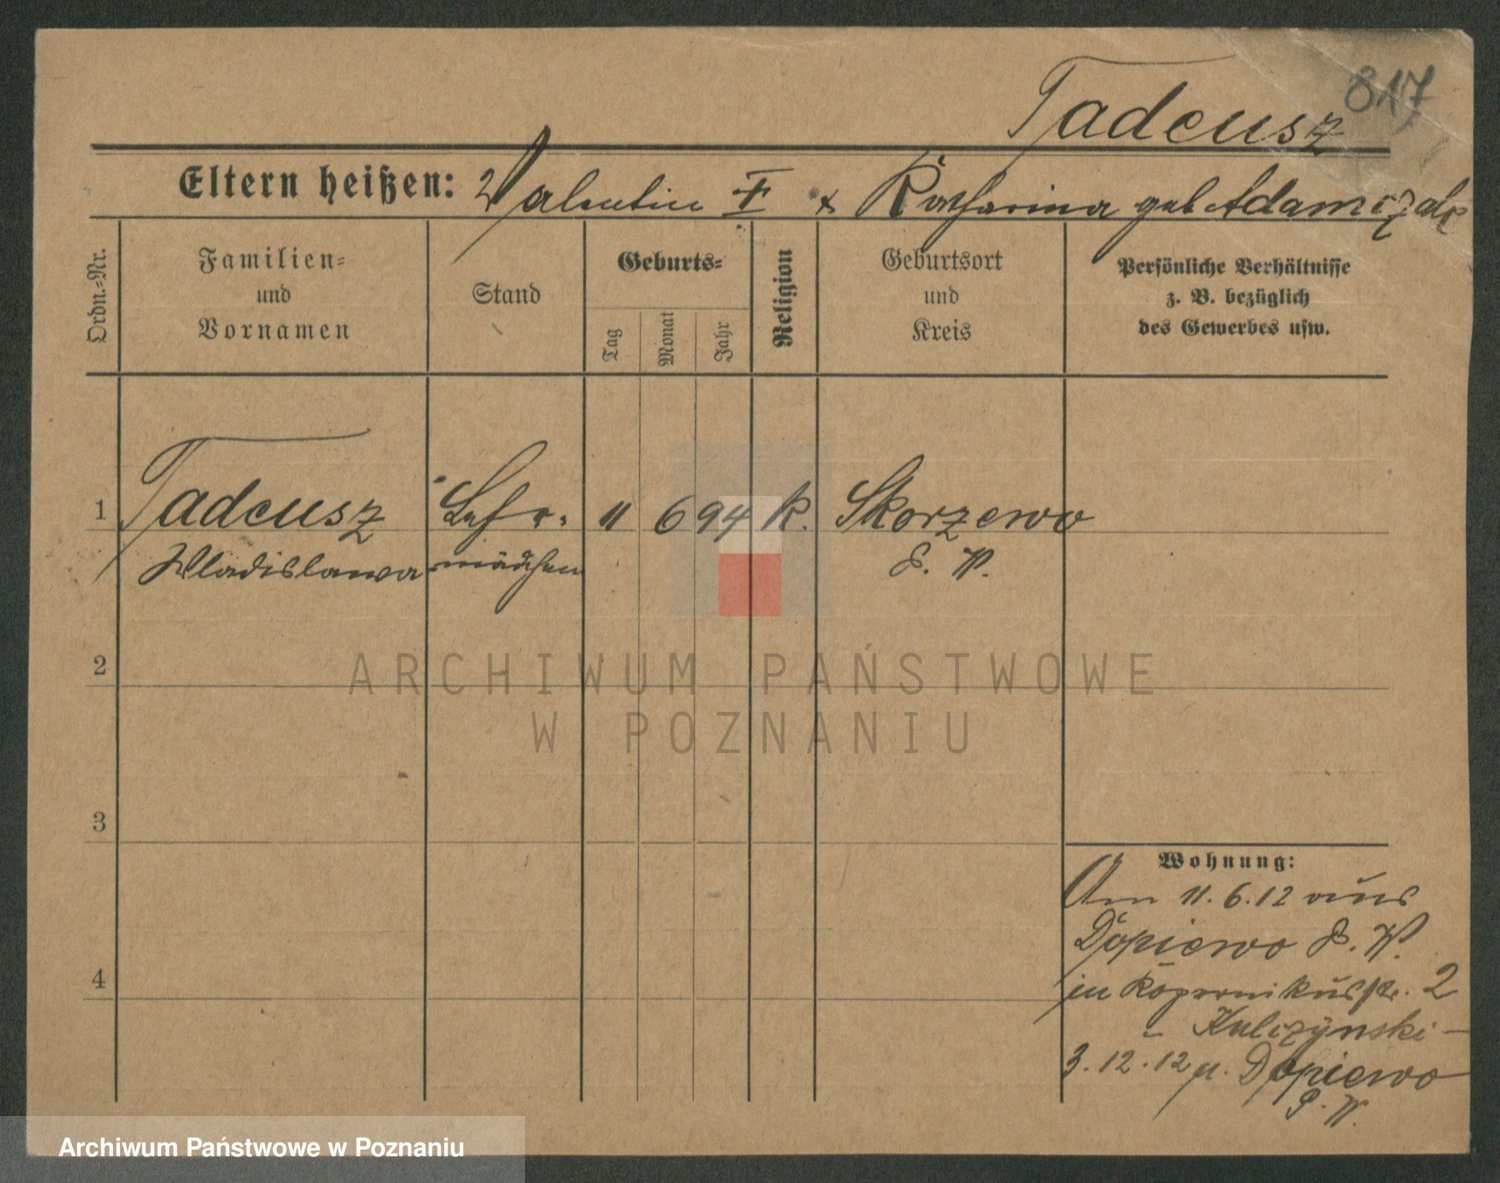 817
Tadeusz
Eltern heißen: Valentin † & Katharina geb Adamczak
Ordn.-Nr.
Familien-
und
Vornamen
Stand
Geburts-
Tag
Monat
Jahr
Religion
Geburtsort
und
Kreis
Persönliche Verhältnisse
z. B. bezüglich
des Gewerbes usw.
1 Tadeusz Lehr- 11 6 94 k. Skorzewo
Wladislawa mädchen P. W.
2
ARCHIWUM PAŃSTWOWE
W POZNANIU
3
Wohnung:
Am 11.6.12 aus
Dopiewo P. W.
in Kopernikusstr. 2
Kulczynski-
3.12.12 n. Dopiewo
P. W.
4
Archiwum Państwowe w Poznaniu